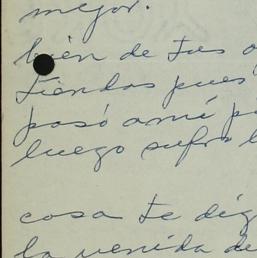 mejor.
bién de tus
tiendas pues
pasó amí
luego sufro
cosa te dig
la venida de